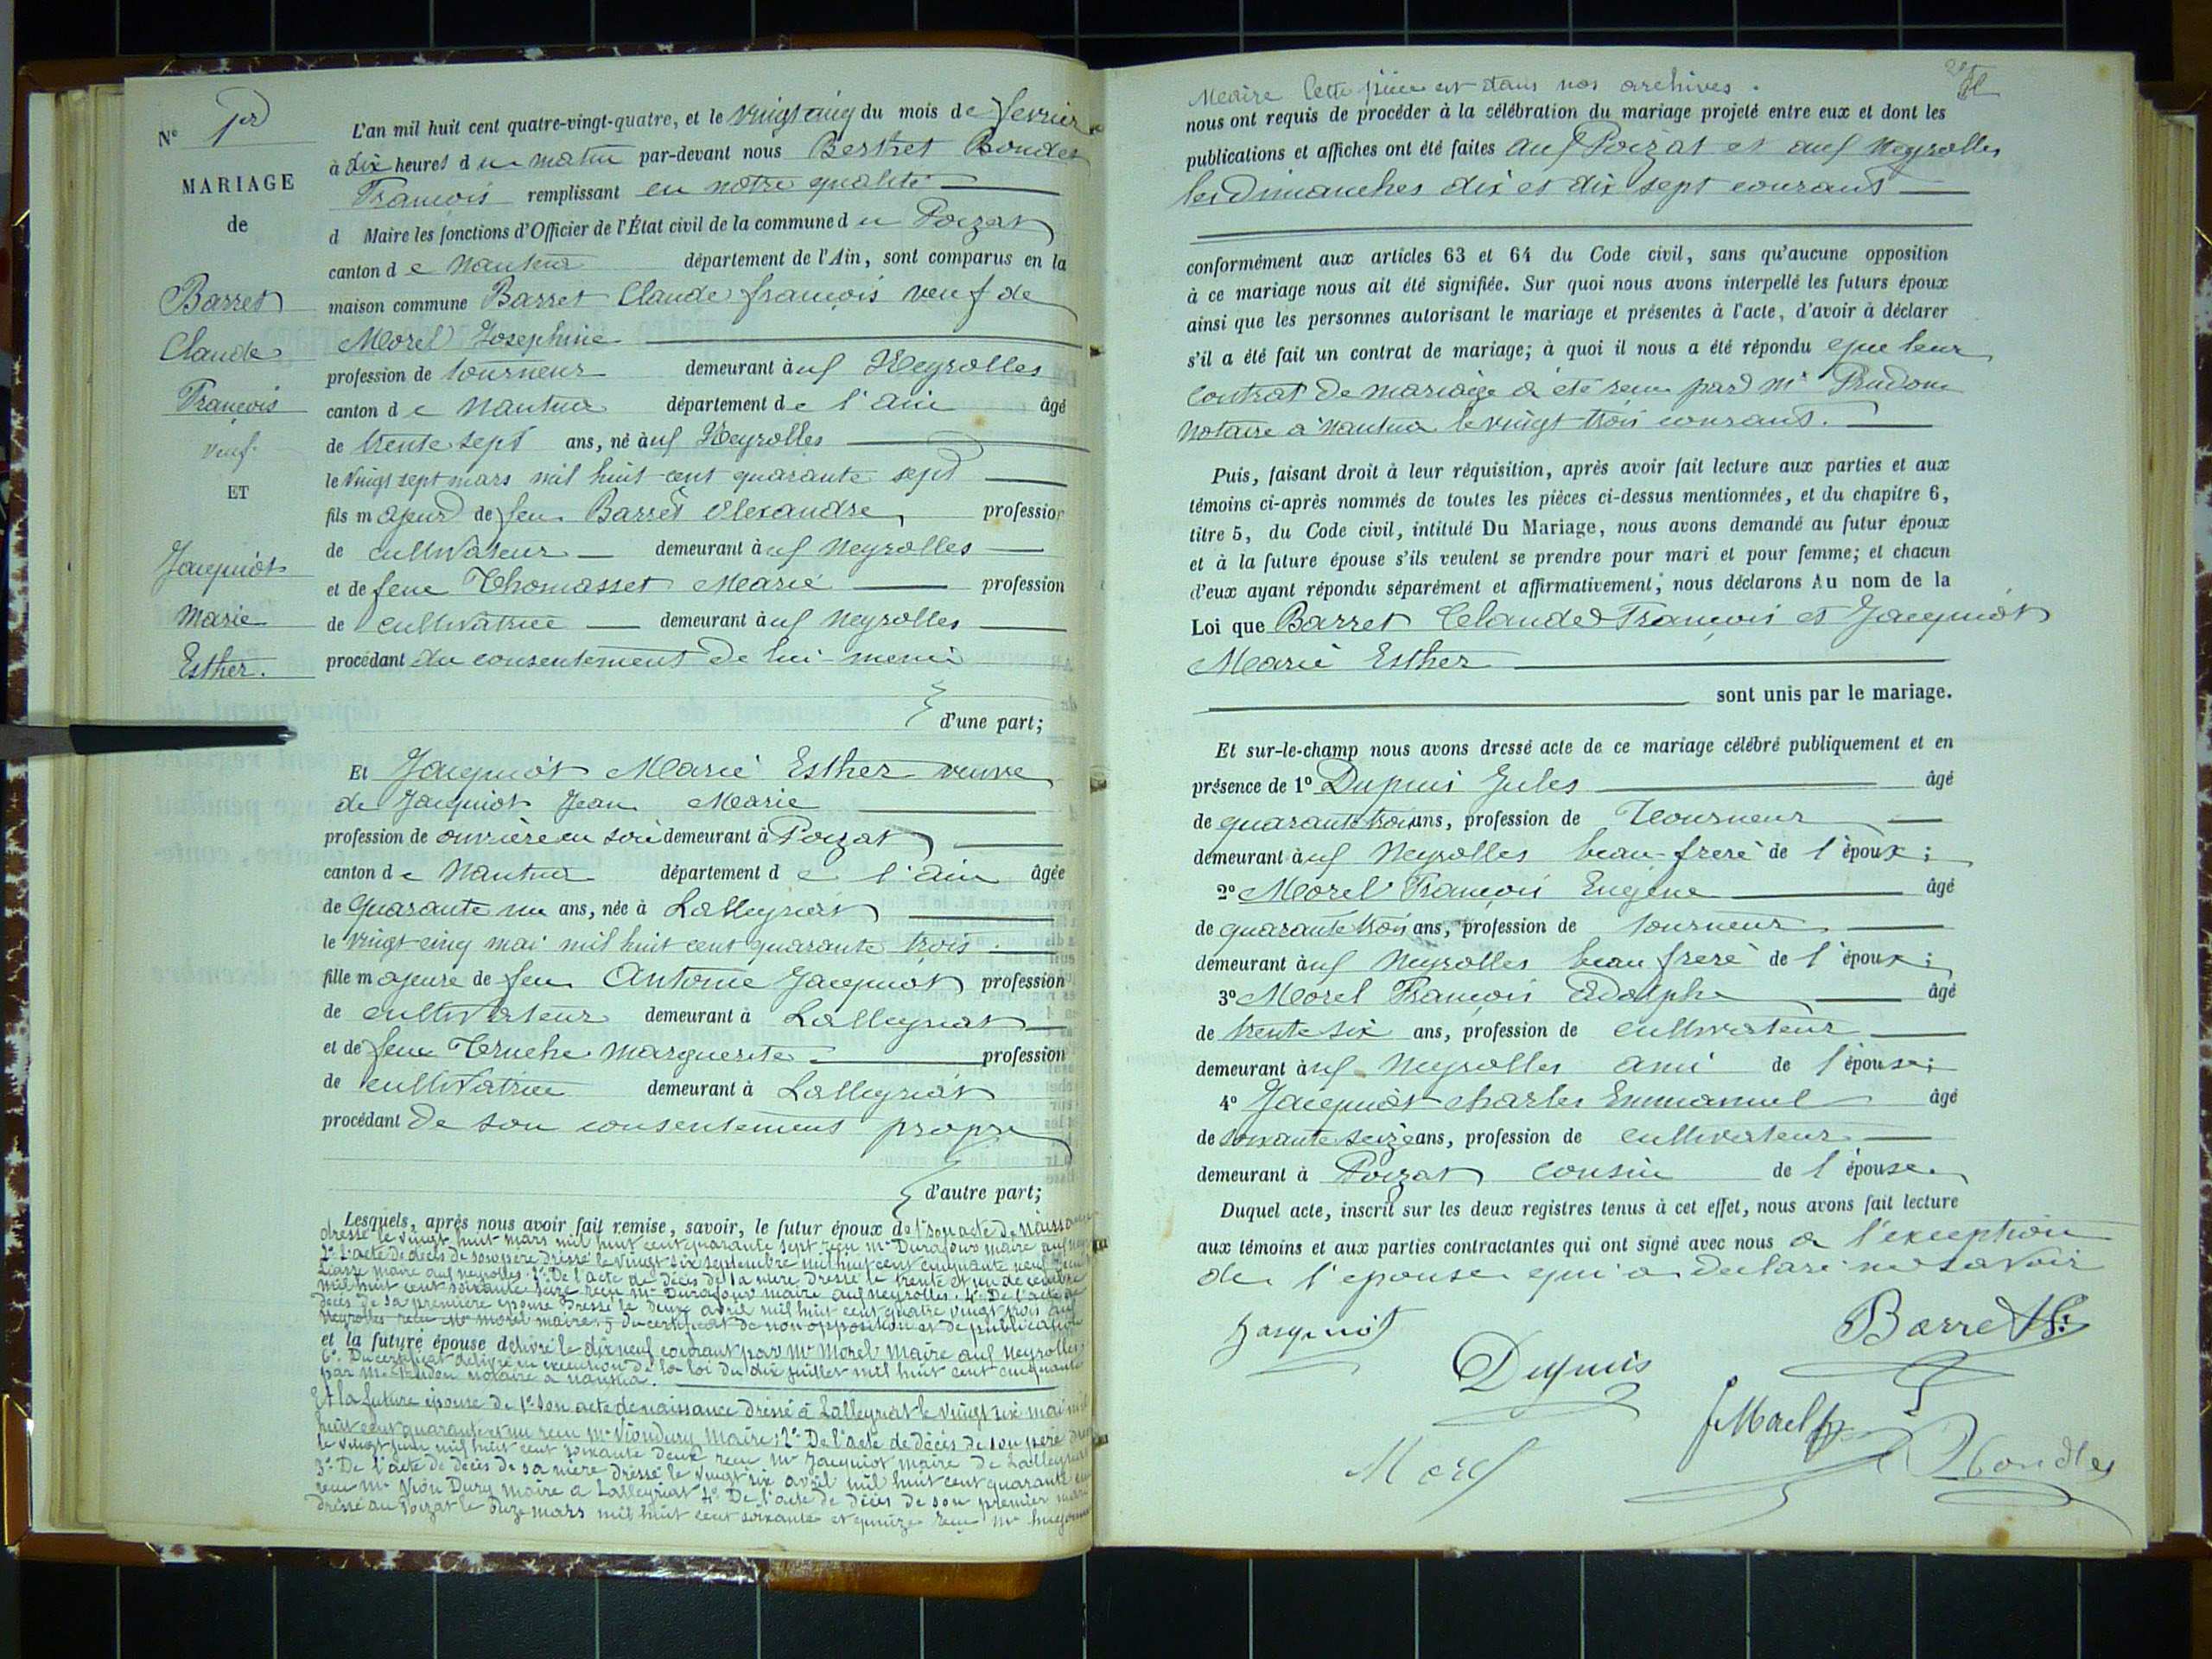 N° 1er
MARIAGE
de
Barret
Claude
François
veuf
ET
Jacquiot
Marie
Esther.
L'an mil huit cent quatre-vingt-quatre, et le vingt cinq du mois de fevrier
à dix heures du matin par-devant nous Berthet Bondet
François remplissant en notre qualité
d Maire les fonctions d'Officier de l'État civil de la commune du Poizat
canton de Nantua département de l'Ain, sont comparus en la
maison commune Barret Claude françois veuf de
Morel Josephine
profession de tourneur demeurant à uf Neyrolles
canton de Nantua département de l'ain âgé
de trente sept ans, né à uf Neyrolles
le vingt sept mars mil huit cent quarante sept
fils majeur de feu Barret Alexandre profession
de cultivateur demeurant à uf Neyrolles
et de feue Thomasset Marie profession
de cultivatrice demeurant à uf Neyrolles
procédant du consentement de lui meme
d'une part;
Et Jacquiot Marie Esther veuve
de Jacquiot Jean Marie
profession de ouvrière en soie demeurant à Poizat
canton de Nantua département de l'ain âgée
de quarante un ans, née à Lalleyriat
le vingt cinq mai mil huit cent quarante trois
fille majeure de feu Antoine Jacquiot profession
de cultivateur demeurant à Lalleyriat
et de feue Truche Marguerite profession
de cultivatrice demeurant à Lalleyriat
procédant de son consentement propre
d'autre part;
Lesquels, après nous avoir fait remise, savoir, le futur époux de 1° son acte de naissance
dressé le vingt huit mars mil huit cent quarante sept reçu Mr Durafour maire auf
2° L'acte de décès de son père dressé le vingt six septembre mil huit cent cinquante neuf
maire auf neyrolles. 3° De l'acte de décès de sa mere dressé le trente et un decembre
mil huit cent soixante seize reçu Mr Durafour maire auf neyrolles. 4° De l'acte de
décès de sa première épouse dressé le deux avril mil huit cent quatre vingt trois auf
neyrolles reçu Mr morel maire. 5 Du certificat de non opposition et de publication
et la future épouse délivré le dix neuf courant par Mr Morel Maire auf Neyrolles
6° Du certificat delivré en execution de la loi du dix juillet mil huit cent cinquante
par Me Prudon notaire a nantua.
Et la future épouse de 1° son acte de naissance dressé à Lalleyriat le vingt six mai mil
huit cent quarante et un reçu Mr Viondury Maire; 2° De l'acte de décès de son père
le vingt juin mil huit cent soixante deux reçu Mr Jacquiot maire de Lalleyriat
3° De l'acte de décès de sa mère dressé le vingt six avril mil huit cent quarante
reçu Mr Vion Dury maire a Lalleyriat 4° De l'acte de décès de son premier mari
dressé au Poizat le onze mars mil huit cent soixante et quinze reçu Mr
Maire Cette pièce est dans nos archives.
nous ont requis de procéder à la célébration du mariage projeté entre eux et dont les
publications et affiches ont été faites auf Poizat et auf Neyrolles
les Dimanches dix et dix sept courant
conformément aux articles 63 et 64 du Code civil, sans qu'aucune opposition
à ce mariage nous ait été signifiée. Sur quoi nous avons interpellé les futurs époux
ainsi que les personnes autorisant le mariage et présentes à l'acte, d'avoir à déclarer
s'il a été fait un contrat de mariage; à quoi il nous a été répondu que leur
contrat de mariage a été reçu par Me Prudon
Notaire a Nantua le vingt trois courant.
Puis, faisant droit à leur réquisition, après avoir fait lecture aux parties et aux
témoins ci-après nommés de toutes les pièces ci-dessus mentionnées, et du chapitre 6,
titre 5, du Code civil, intitulé Du Mariage, nous avons demandé au futur époux
et à la future épouse s'ils veulent se prendre pour mari et pour femme; et chacun
d'eux ayant répondu séparément et affirmativement, nous déclarons Au nom de la
Loi que Barret Claude François et Jacquiot
Marie Esther
sont unis par le mariage.
Et sur-le-champ nous avons dressé acte de ce mariage célébré publiquement et en
présence de 1° Dupuis Jules âgé
de quarante trois ans, profession de Tourneur
demeurant à uf Neyrolles beau-frere de l'époux;
2° Morel François Eugène âgé
de quarante trois ans, profession de tourneur
demeurant à uf Neyrolles beau frere de l'époux;
3° Morel François Adolphe âgé
de trente six ans, profession de cultivateur
demeurant à uf Neyrolles ami de l'épouse;
4° Jacquiot charles Emmanuel âgé
de soixante seize ans, profession de cultivateur
demeurant à Poizat cousin de l'épouse.
Duquel acte, inscrit sur les deux registres tenus à cet effet, nous avons fait lecture
aux témoins et aux parties contractantes qui ont signé avec nous a l'exception
de l'epouse qui a declaré ne savoir
Jacquiot
Barret
Dupuis
Morel